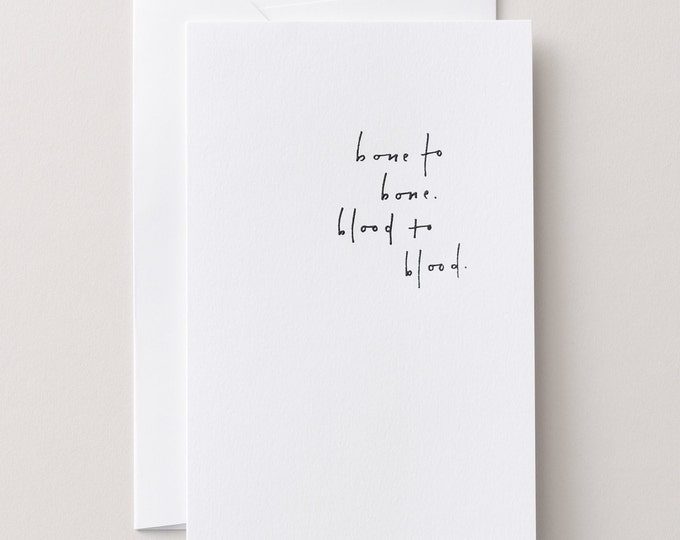 bone to
bone.
blood to
blood.